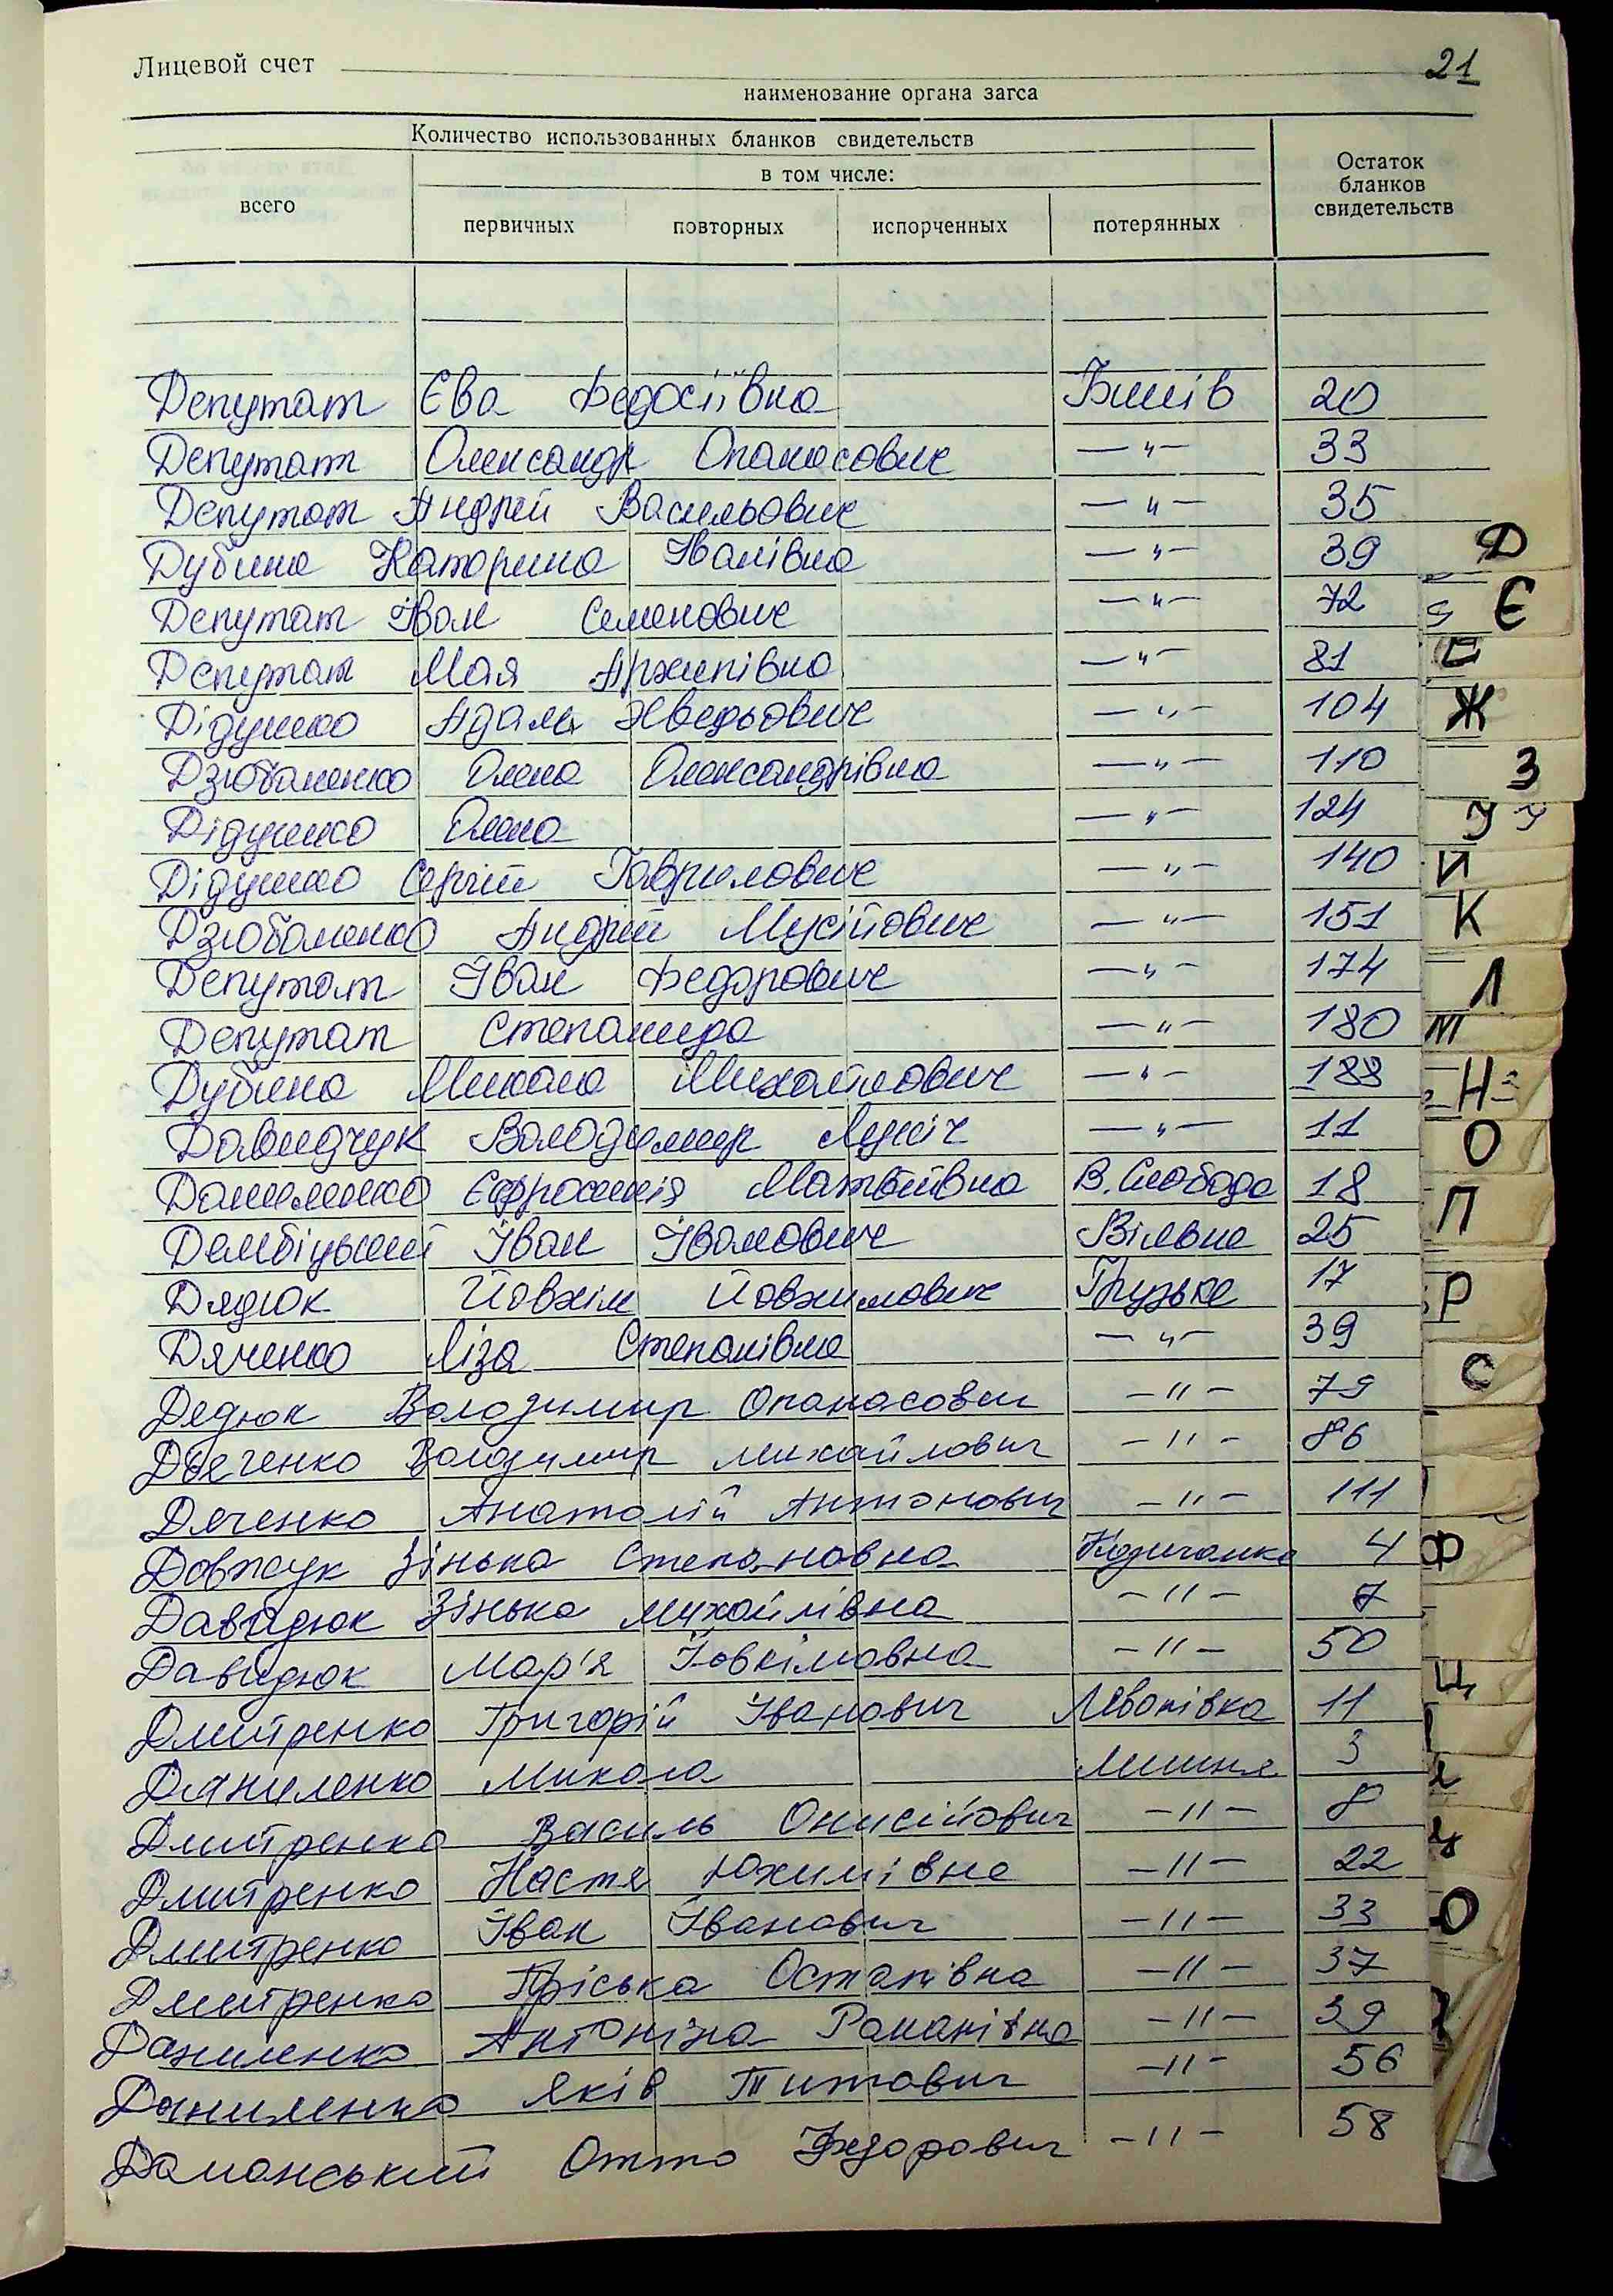 Лицевой счет 21
наименование органа загса
Количество использованных бланков свидетельств
в том числе:
всего первичных повторных испорченных потерянных Остаток бланков свидетельств
Депутат Єва Федосіївна 20
Депутат Олександр Опанасович —"— 33
Депутат Андрій Васильович —"— 35
Дубина Катерина Іванівна —"— 39
Депутат Іван Семенович —"— 72
Депутат Мая Архипівна —"— 81
Дідушко Адам —"— 104
Дзюбаненко Олена Олександрівна —"— 110
Дідушко Олена —"— 124
Дідушко Сергій Гаврилович —"— 140
Дзюбаненко Андрій Мусійович —"— 151
Депутат Іван Федорович —"— 174
Депутат Степанида —"— 180
Дубина Микола Михайлович —"— 188
Давидчук Володимир —"— 11
Даниленко Єфросинія Матвіївна В. Слобода 18
Дембіцький Іван Іванович Вільне 25
Дядюк Йовхім Йовхимович Грузьке 17
Дяченко Ліза Степанівна —"— 39
Дядюк Володимир Опанасович —"— 79
Дьяченко Володимир Михайлович —"— 86
Дяченко Анатолій Антонович —"— 111
Довжук Зінька Степановна 4
Давидюк Зінька Михайлівна —"— 7
Давидюк Мар'я —"— 50
Дмитренко Григорій Іванович 11
Даниленко Микола 3
Дмитренко Василь Онисійович —"— 8
Дмитренко Настя Юхимівна —"— 22
Дмитренко Іван Іванович —"— 33
Дмитренко Пріська Остапівна —"— 37
Даниленко Антоніна Романівна —"— 39
Даниленко Яків Титович —"— 56
Отто Федорович —"— 58
Д
Є
Ж
З
У
И
К
Л
М
Н
О
П
Р
С
Ф
Ц
Ю